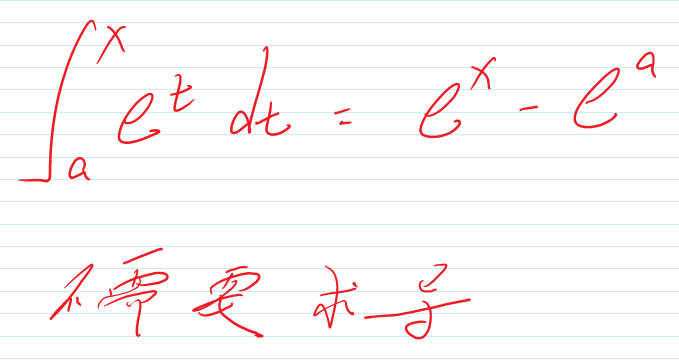 ∫ₐˣ eᵗ dt = eˣ - eᵃ
不需要求导